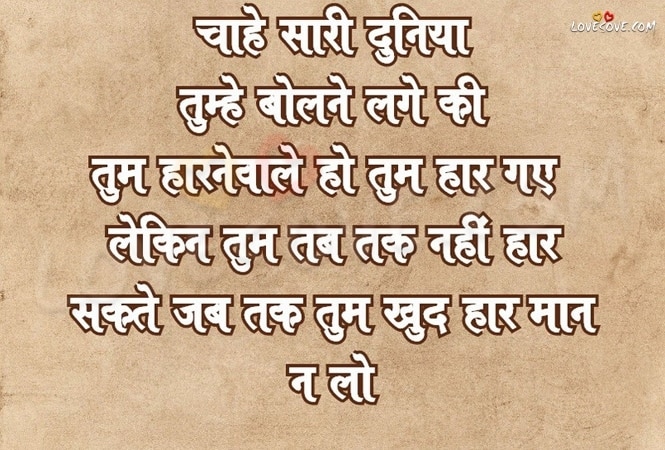 LOVESOVE.COM
चाहे सारी दुनिया
तुम्हे बोलने लगे की
तुम हारनेवाले हो तुम हार गए
लेकिन तुम तब तक नहीं हार
सकते जब तक तुम खुद हार मान
न लो